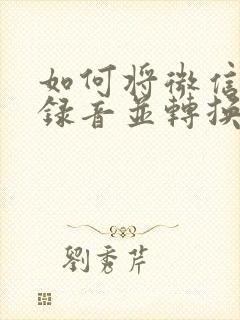 如何将微信
録音並轉换
劉秀芹